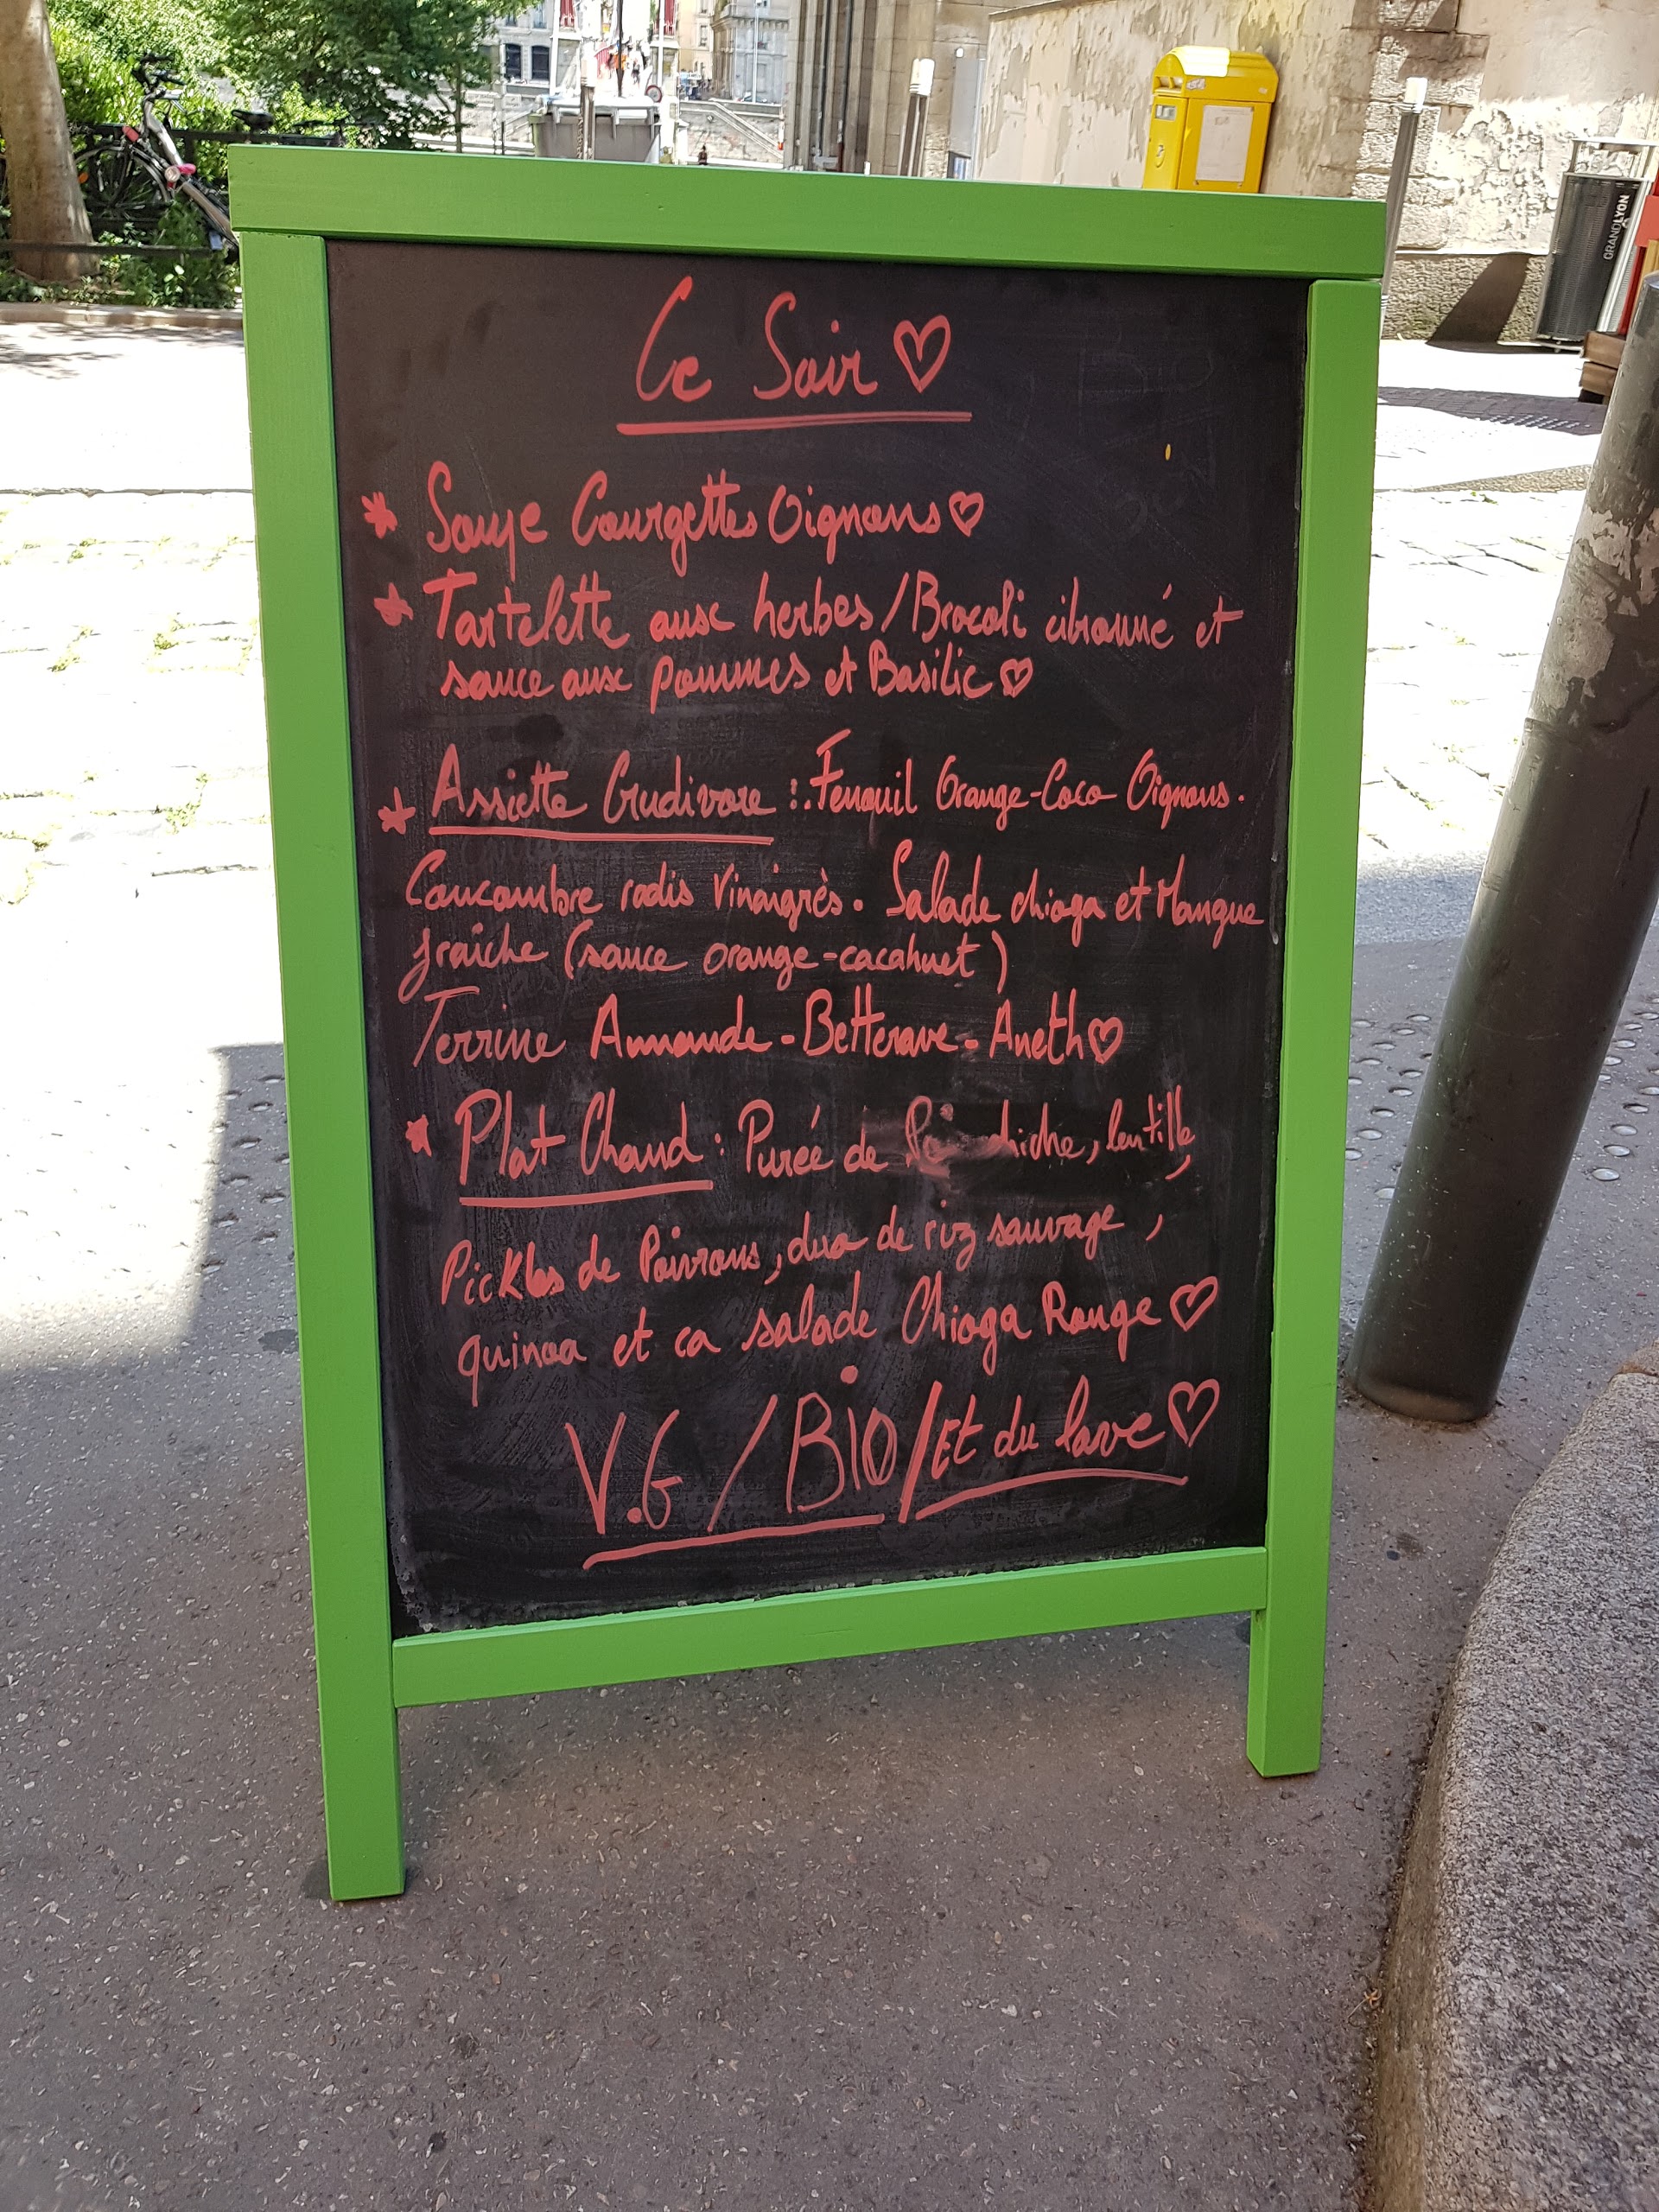 Ce Soir ♡
* Soupe Courgettes Oignons ♡
* Tartelette aux herbes / Brocoli citronné et
sauce aux pommes et Basilic ♡
* Assiette Crudivore : . Fenouil Orange-Coco Oignons .
Concombre radis Vinaigrès . Salade chioga et Mangue
fraîche (sauce orange-cacahuet)
Terrine Amande - Betterave - Aneth ♡
* Plat Chaud : Purée de chiche, lentille,
Pickles de Poivrons, duo de riz sauvage ,
quinoa et ca salade Chioga Rouge ♡
V.G / BIO / Et du love ♡
GRANDLYON